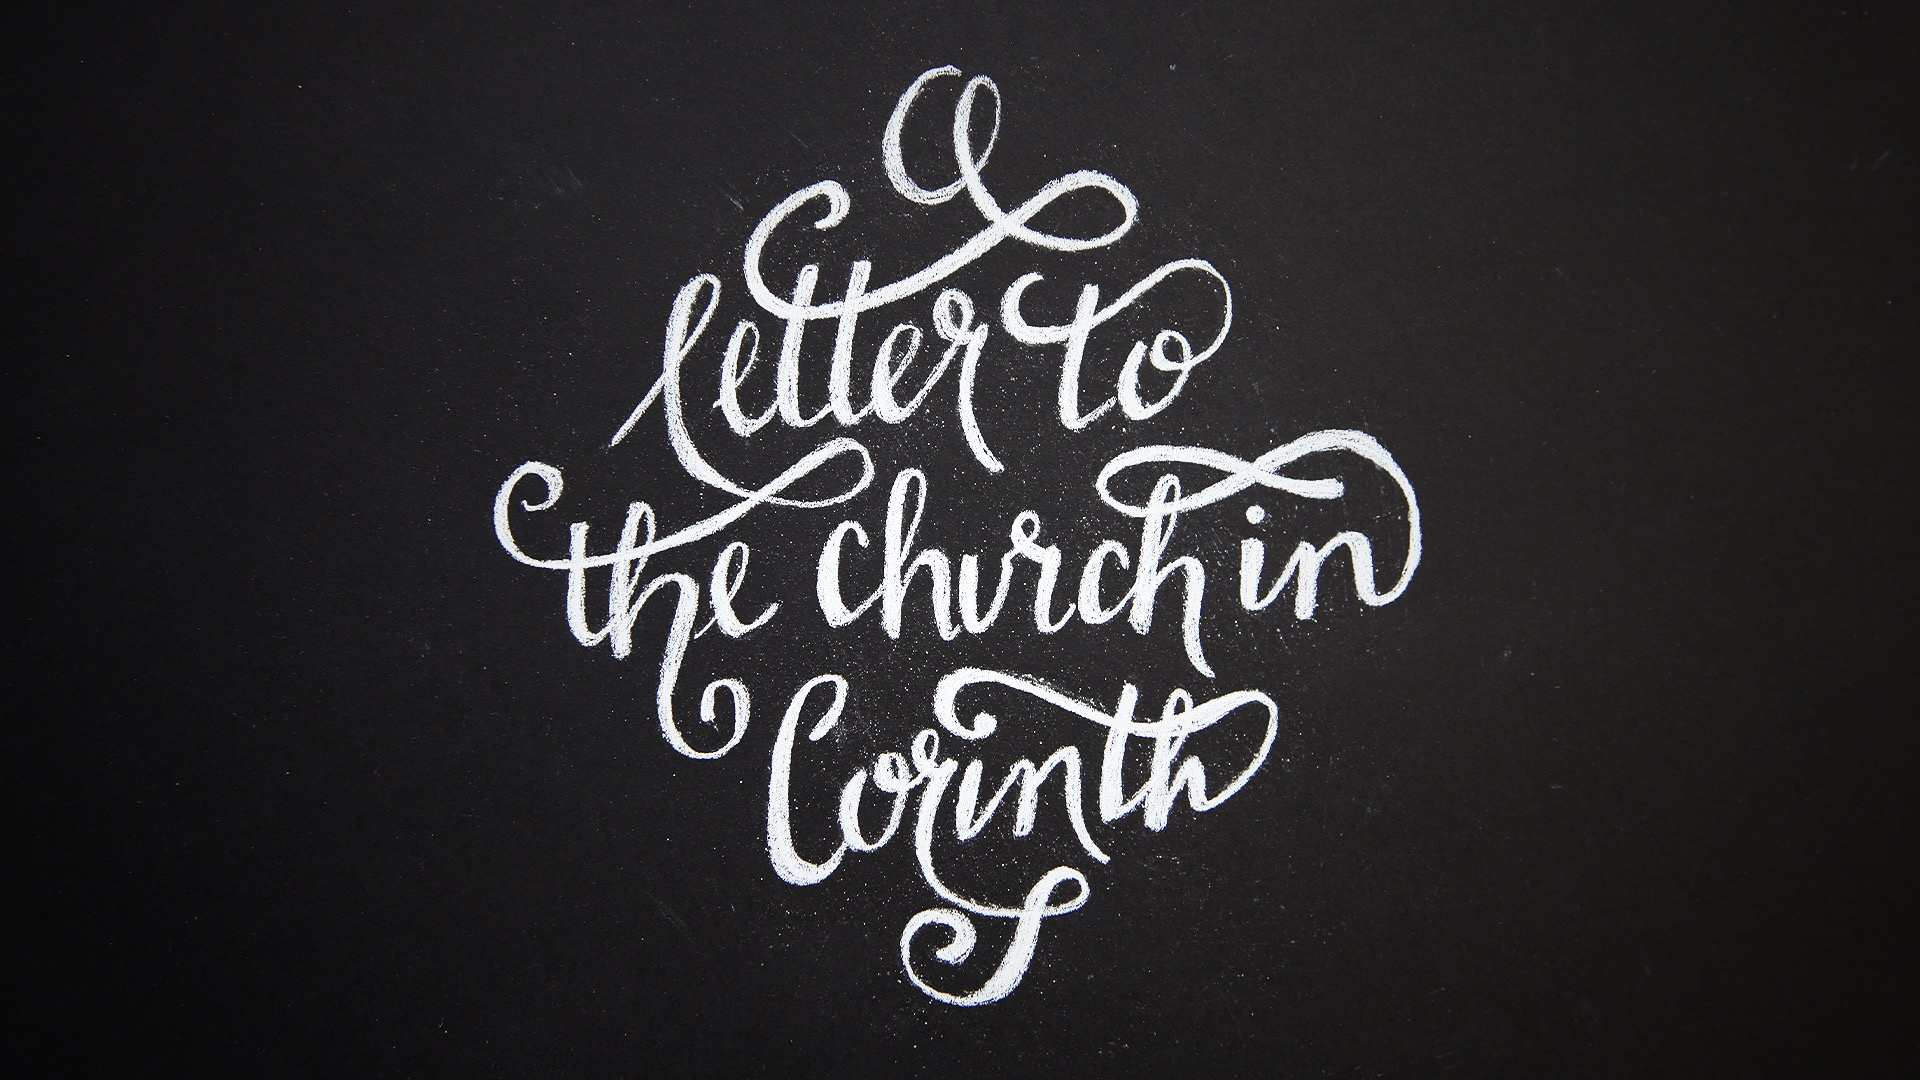 a
letter to
the church in
Corinth